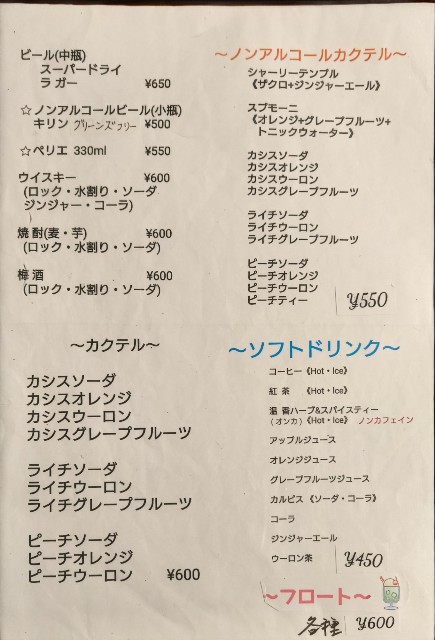 ビール(中瓶)
スーパードライ
ラガー ¥650
☆ノンアルコールビール(小瓶)
キリン グリーンズフリー ¥500
☆ペリエ 330ml ¥550
ウイスキー ¥600
(ロック・水割り・ソーダ
ジンジャー・コーラ)
焼酎(麦・芋) ¥600
(ロック・水割り・ソーダ)
梅酒 ¥600
(ロック・水割り・ソーダ)
～カクテル～
カシスソーダ
カシスオレンジ
カシスウーロン
カシスグレープフルーツ
ライチソーダ
ライチウーロン
ライチグレープフルーツ
ピーチソーダ
ピーチオレンジ
ピーチウーロン ¥600
～ノンアルコールカクテル～
シャーリーテンプル
《ザクロ+ジンジャーエール》
スプモーニ
《オレンジ+グレープフルーツ+
トニックウォーター》
カシスソーダ
カシスオレンジ
カシスウーロン
カシスグレープフルーツ
ライチソーダ
ライチウーロン
ライチグレープフルーツ
ピーチソーダ
ピーチオレンジ
ピーチウーロン
ピーチティー ¥550
～ソフトドリンク～
コーヒー《Hot・Ice》
紅茶 《Hot・Ice》
温香ハーブ&スパイスティー
(オンカ)《Hot・Ice》 ノンカフェイン
アップルジュース
オレンジジュース
グレープフルーツジュース
カルピス《ソーダ・コーラ》
コーラ
ジンジャーエール
ウーロン茶 ¥450
～フロート～
各種 ¥600